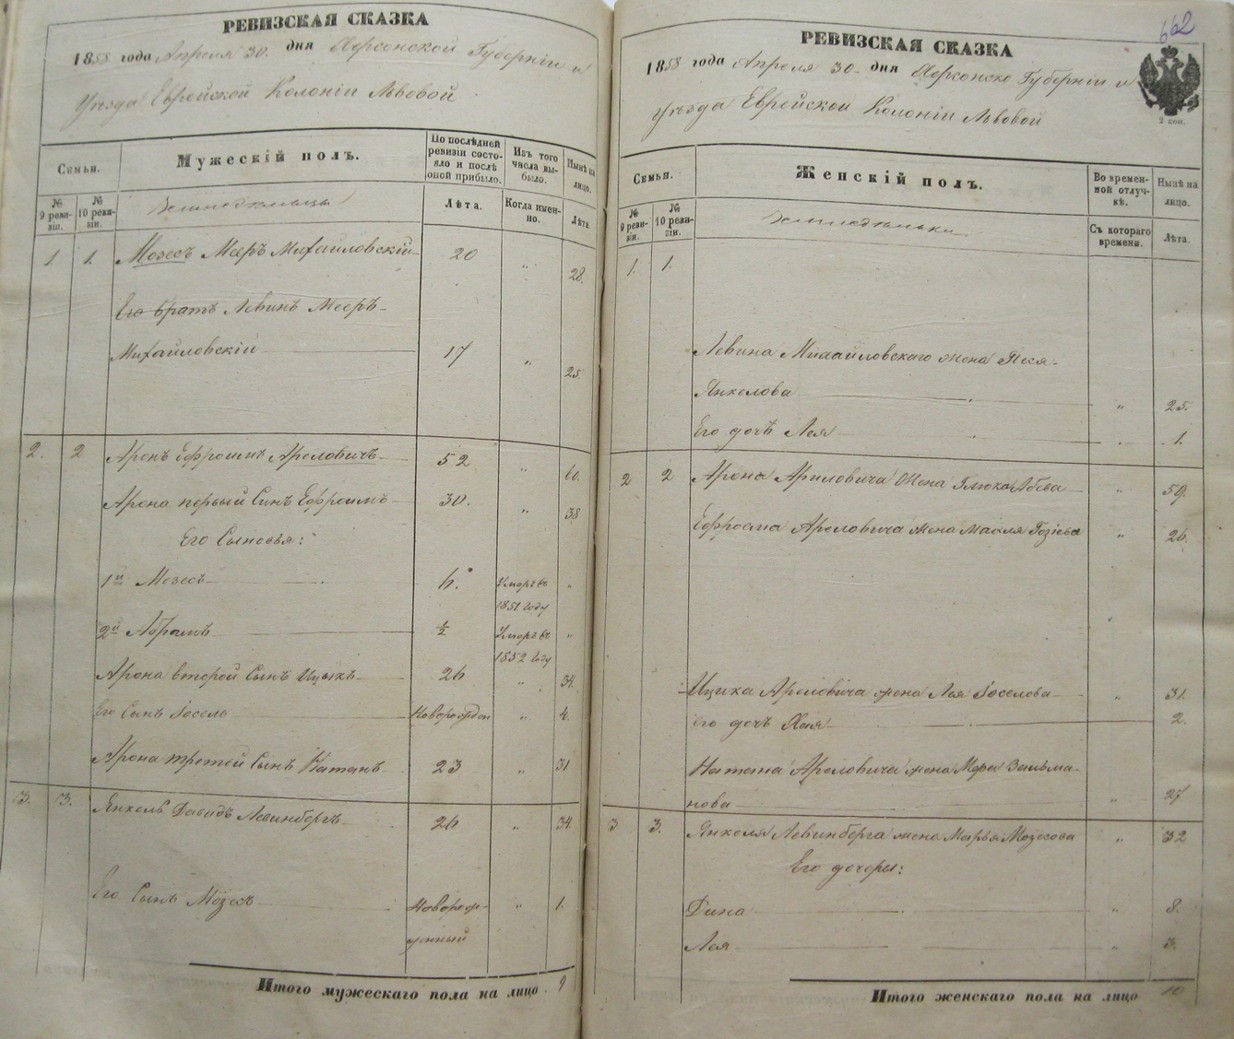 РЕВИЗСКАЯ СКАЗКА
1858 года Апреля 30 дня Херсонской Губерніи и
уѣзда Еврейской Колоніи Львовой
Семьи.
Мужескій полъ.
По послѣдней ревизіи состояло и послѣ оной прибыло.
Изъ того числа выбыло.
Нынѣ на лицо.
№ 9 ревизіи.
№ 10 ревизіи.
Лѣта.
Когда именно.
Лѣта.
1 1. Мозесъ Мееръ Михайловскій 20 „ 28.
Его братъ Левинъ Мееръ
Михайловскій 17 „ 25.
2. 2 Аронъ Ефроимъ Ареловичъ 52 „ 60.
Арона первый Сынъ Ефроимъ 30. „ 38
Его Сыновья:
1й Мозесъ 6. Умеръ въ 1851 году „
2й Абрамъ ½ Умеръ въ 1852 году „
Арона второй Сынъ Ицыкъ 26 „ 34.
Его Сынъ Іосель Новорожден „ 4.
Арона третій Сынъ Натанъ 23 „ 31
3. 3. Янкель Давидъ Левинбергъ 26 „ 34.
Его Сынъ Мозесъ Новорож- „ 1.
денный
Итого мужескаго пола на лицо 9
662
РЕВИЗСКАЯ СКАЗКА
1858 года Апреля 30 дня Херсонско Губерніи и
уѣзда Еврейской Колоніи Львовой
2 коп.
Семьи.
Женскій полъ.
Во временной отлучкѣ.
Нынѣ на лицо.
№ 9 ревизіи.
№ 10 ревизіи.
Съ котораго времени.
Лѣта.
1. 1.
Левина Михайловскаго жена Песя
Янкелова „ 25.
Его дочь Лея „ 1.
2 2 Арона Ариловича жена Глюка „ 59.
Ефроима Ареловича жена Масля „ 26.
Ицика Ареловіча жена Лая Іоселова „ 31.
Его дочь Хая 2.
Натана Ареловича жена Мера Зальма-
нова „ 27
3 3. Янкеля Левинберга жена Марья Мозесова „ 32
Его дочеры:
Дина „ 8.
Лея „ 3.
Итого женскаго пола на лицо 10